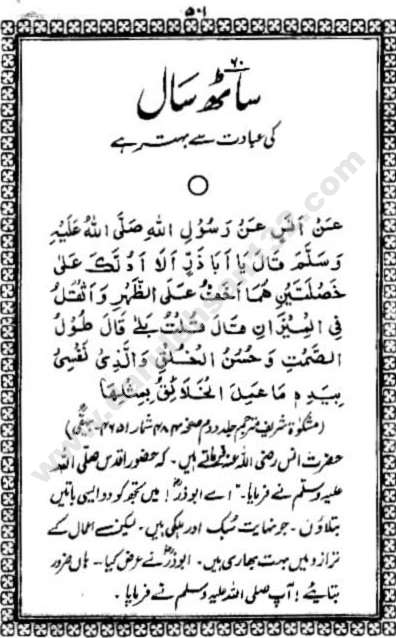 ۵۰۱
۶۰
ساٹھ سال
کی عبادت سے بہتر ہے
عَنْ اَنَسٍ عَنْ رَسُوْلِ اللهِ صَلَّى اللهُ عَلَيْهِ
وَسَلَّمَ قَالَ يَا اَبَا ذَرٍّ اَلَا اَدُلُّكَ عَلٰى
خَصْلَتَيْنِ هُمَا اَخَفُّ عَلَى الظَّهْرِ وَاَثْقَلُ
فِى الْمِيْزَانِ قَالَ قُلْتُ بَلٰى قَالَ طُوْلُ
الصَّمْتِ وَحُسْنُ الْخُلُقِ وَالَّذِىْ نَفْسِىْ
بِيَدِهٖ مَا عَمِلَ الْخَلَائِقُ بِمِثْلِهَا
(مشکوٰۃ شریف مترجم جلد دوم صفحہ ۴۸۴ شمار ۴۶۵۱-بیہقی)
حضرت انس رضی اللہ عنہ فرماتے ہیں۔ کہ حضور اقدس صلی اللہ
علیہ وسلم نے فرمایا۔ "اے ابوذرؓ! میں تجھ کو دو ایسی باتیں
بتلاؤں۔ جو نہایت سُبک اور ہلکی ہیں۔ لیکن سے اعمال کے
ترازو میں بہت بھاری ہیں۔ ابوذرؓ نے عرض کیا۔- ہاں ضرور
بتایئے! آپ صلی اللہ علیہ وسلم نے فرمایا۔